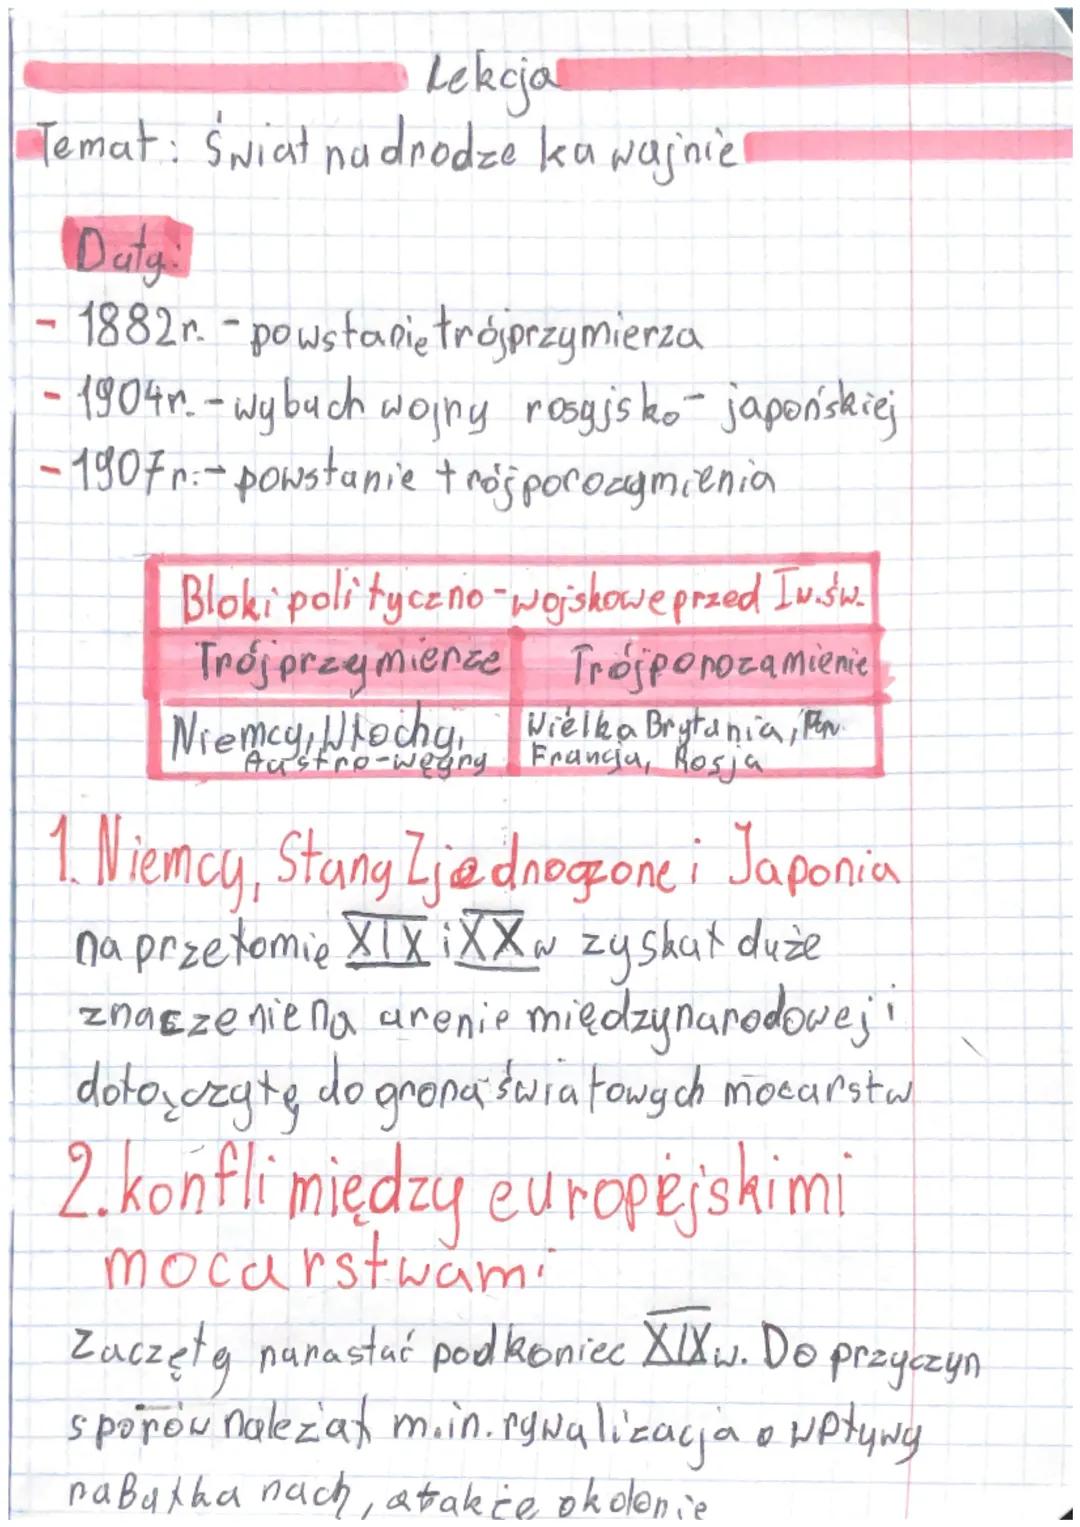 Lekcja
Temat: Świat na drodze ka wajnie
Daty:
- 1882r. - powstanie trójprzymierza
- 1904r. - wybuch wojny rosyjsko - japońskiej
- 1907r. - powstanie trójporozymienia
Bloki polityczno - wojskowe przed I w. św.
Trójprzymierze Trójporozamienie
Niemcy, Włochy, Wielka Brytania,
Austro-węgry Francja, Rosja
1. Niemcy, Stany Zjednoczone i Japonia
na przełomie XIX i XX w zyskał duże
znaczenie na arenie międzynarodowej i
dołączyły do grona światowych mocarstw
2. konfli między europejskimi
mocarstwami
Zaczęły narastać pod koniec XIX w. Do przyczyn
sporów należał m.in. rywalizacja o wpływy
na Bałkanach, także o kolonie